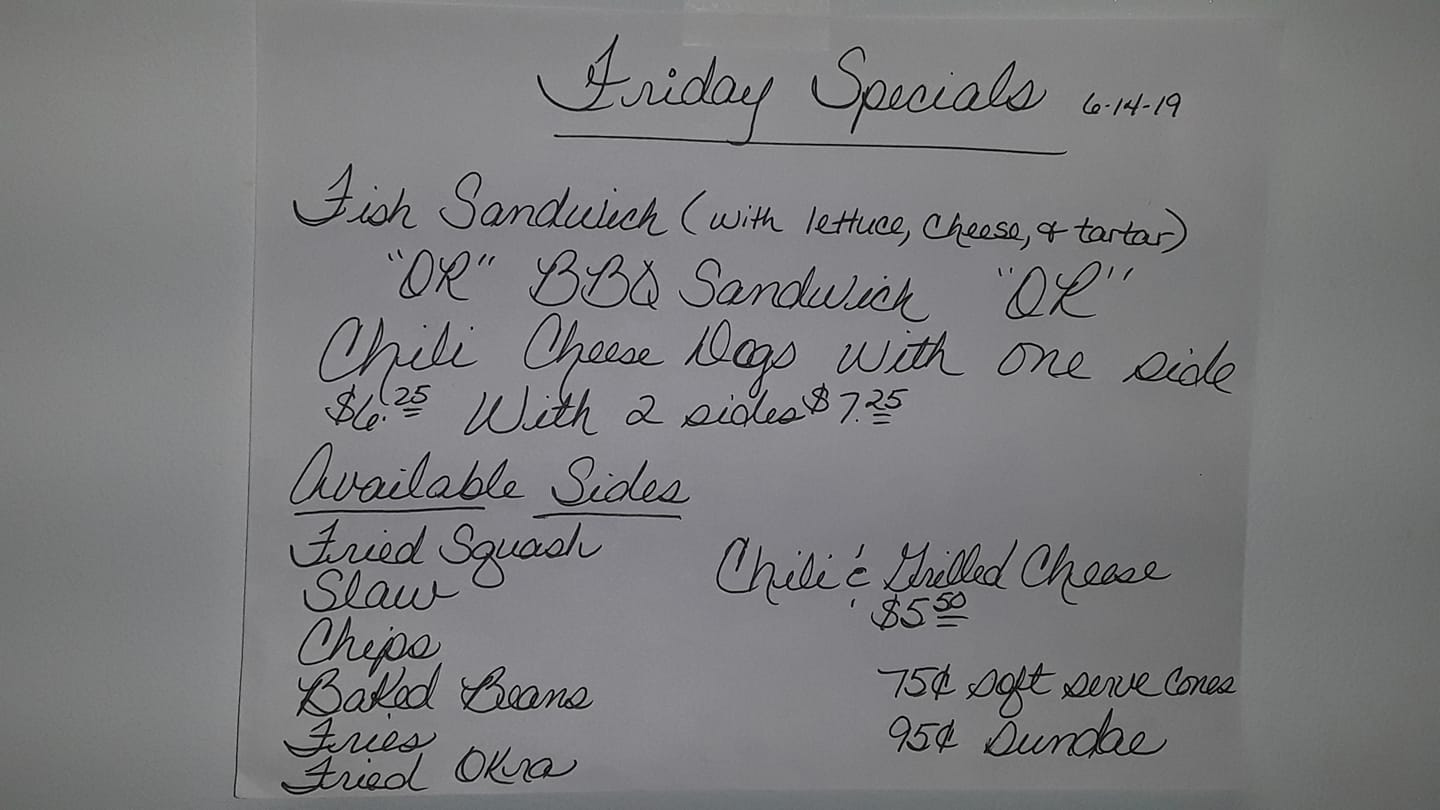 Friday Specials 6-14-19
Fish Sandwich (with lettuce, cheese, & tartar)
"OR" BBQ Sandwich "OR"
Chili Cheese Dogs with one side
$6.25 With 2 sides $7.25
Available Sides
Fried Squash
Slaw
Chips
Baked Beans
Fries
Fried Okra
Chili & Grilled Cheese
$5 50
75¢ soft serve cones
95¢ Sundae